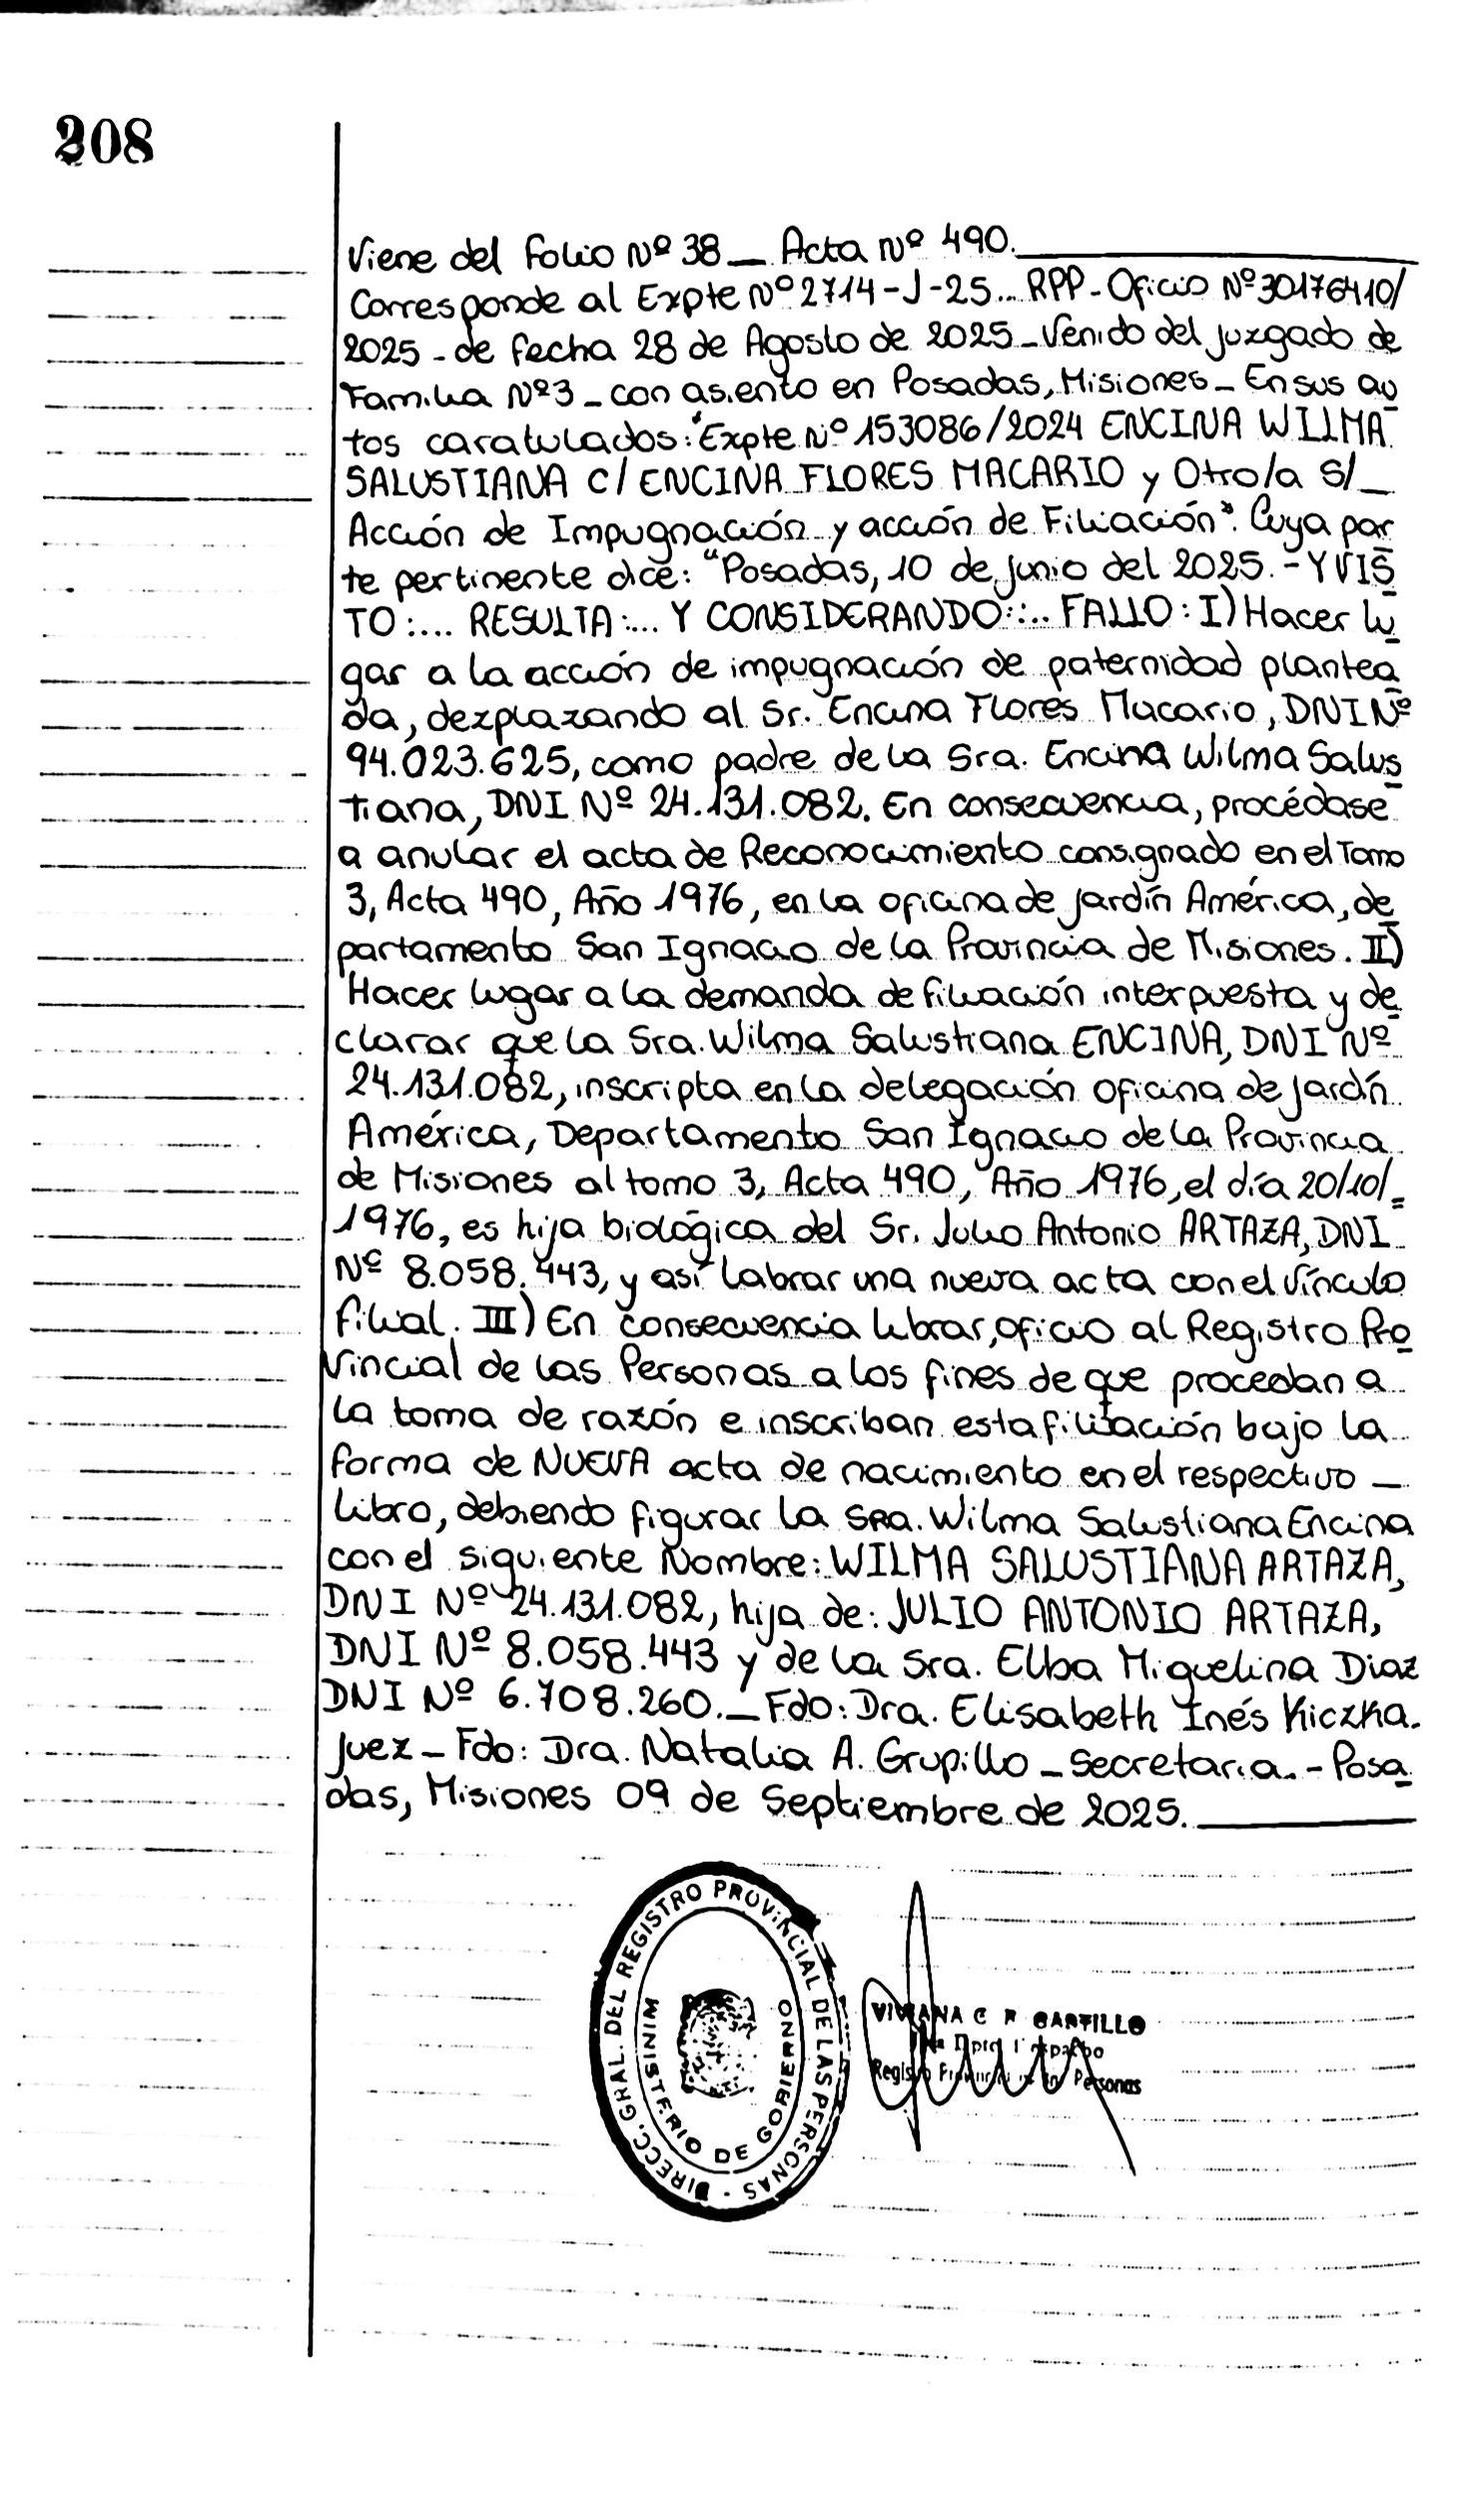 208
Viene del Folio Nº 38 _ Acta Nº 490.
Corresponde al Expte Nº 2714-J-25... RPP- Oficio Nº 30176410/
2025 - de fecha 28 de Agosto de 2025 - Venido del Juzgado de
Familia Nº3 - con asiento en Posadas, Misiones - En sus au
tos caratulados: "Expte Nº 153086/2024 ENCINA WILMA
SALUSTIANA C/ ENCINA FLORES MACARIO y Otro/a S/_
Acción de Impugnación y acción de Filiación". Cuya par
te pertinente dice: "Posadas, 10 de Junio del 2025. - Y VIS
TO:... RESULTA:... Y CONSIDERANDO:... FALLO: I) Hacer lu
gar a la acción de impugnación de paternidad plantea
da, dezplazando al Sr. Encina Flores Macario, DNI Nº
94.023.625, como padre de la Sra. Encina Wilma Salus
tiana, DNI Nº 24.131.082. En consecuencia, procédase
a anular el acta de Reconocimiento consignado en el Tomo
3, Acta 490, Año 1976, en la oficina de Jardín América, de
partamento San Ignacio de la Provincia de Misiones. II)
Hacer lugar a la demanda de filiación interpuesta y de
clarar que la Sra. Wilma Salustiana ENCINA, DNI Nº
24.131.082, inscripta en la delegación oficina de Jardín
América, Departamento San Ignacio de la Provincia
de Misiones al tomo 3, Acta 490, Año 1976, el día 20/10/=
1976, es hija biológica del Sr. Julio Antonio ARTAZA, DNI
Nº 8.058.443, y así labrar una nueva acta con el vínculo
filial. III) En consecuencia librar, oficio al Registro Pro
vincial de las Personas a los fines de que procedan a
la toma de razón e inscriban esta filiación bajo la
forma de NUEVA acta de nacimiento en el respectivo _
libro, debiendo figurar la SRA. Wilma Salustiana Encina
con el siguiente Nombre: WILMA SALUSTIANA ARTAZA,
DNI Nº 24.131.082, hija de: JULIO ANTONIO ARTAZA,
DNI Nº 8.058.443 y de la Sra. Elba Miguelina Diaz
DNI Nº 6.708.260. _ Fdo: Dra. Elisabeth Inés Kiczka.
Juez - Fdo: Dra. Natalia A. Grupillo - Secretaria. - Posa
das, Misiones 09 de Septiembre de 2025.
DIRECC. GRAL. DEL REGISTRO PROVINCIAL DE LAS PERSONAS -
MINISTERIO DE GOBIERNO
VIVIANA C R CASTILLO
Personas